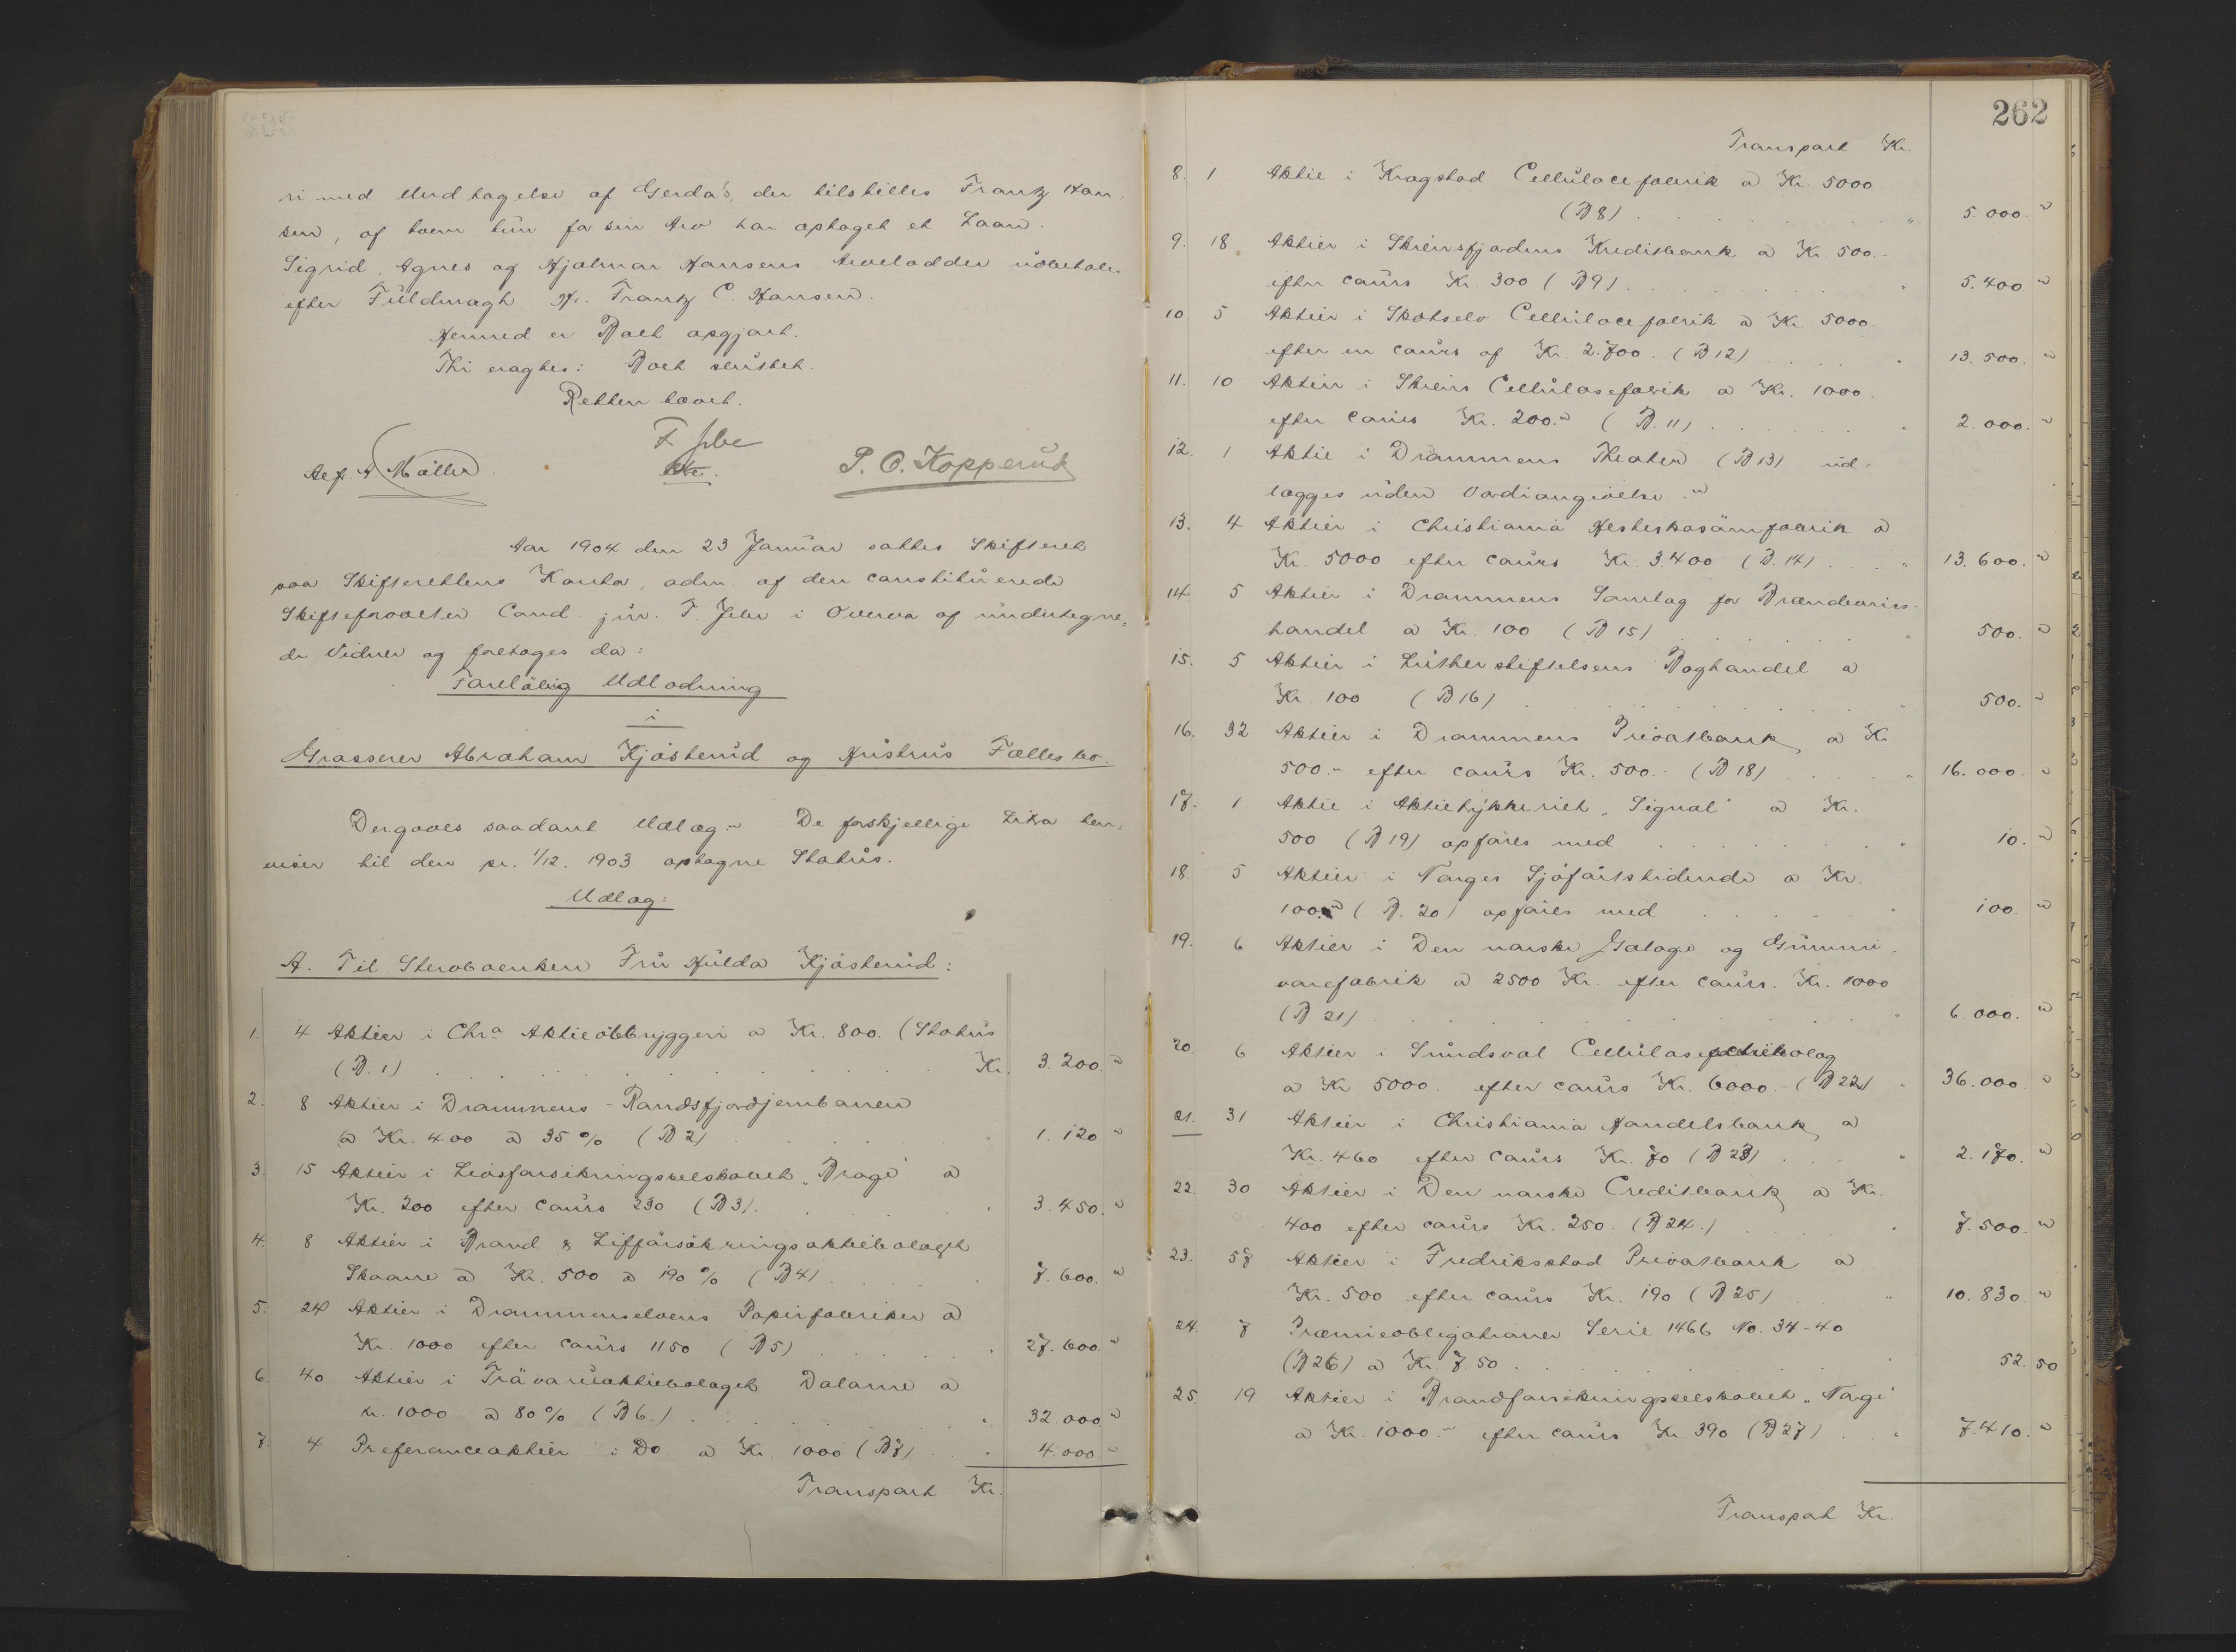 ri med Undtagelse af Gerda's, der tilstilles Frantz Han-
sen, af hvem hun for sin Arv har optaget et Laan.
Sigrid, Agnes og Hjalmar Hansens Arvelodder udbetales
efter Fuldmagt Hr. Frantz C. Hansen.
Hermed er Boet opgjort.
Thi eragtes: Boet sluttet.
Retten hævet.
F Jebe
P. O. Kopperud
Møller
Aar 1904 den 23 Januar sattes Skifteret
paa Skifterettens Kontor, adm. af den constituerede
Skifteforvalter Cand. jur. F. Jebe i Overvær af undertegne-
de Vidner og foretoges da:
Foreløbig Udlodning
i
Grosserer Abraham Kjøsterud og Hustrus Fællesbo.
Der gaves saadant Udlæg: De forskjellige Litra hen-
viser til den pr. 1/12. 1903 optagne Status.
Udlæg:
A. Til Stervboenken Fru Hulda Kjøsterud:
1. 4 Aktier i Chra Aktieølbryggeri a Kr. 800. (Status
(B. 1) Kr. 3.200. "
2. 8 Aktier i Drammens-Randsfjordjernbanen
a Kr. 400 a 35 % (B 2) " 1.120 "
3. 15 Aktier i Livsforsikringsselskabet "Brage" a
Kr. 200 efter cours 230 (B 3). " 3.450. "
4. 8 Aktier i Brand & Lifförsäkringsaktiebolaget
Skaane a Kr. 500 a 190 % (B 4) " 7.600. "
5. 24 Aktier i Drammenselvens Papirfabriker a
Kr. 1000 efter cours 1150 (B 5) " 27.600. "
6. 40 Aktier i Trävaruaktiebolaget Dalarne a
kr. 1000 a 80 % (B 6.) " 32.000 "
7. 4 Preferanceaktier i Do a Kr. 1000 (B 7) " 4.000 "
Transport Kr.
262
Transport Kr.
8. 1 Aktie i Krogstad Cellulosefabrik a Kr. 5000
(B 8) " 5.000. "
9. 18 Aktier i Skiensfjordens Kreditbank a Kr. 500.-
efter cours Kr. 300 (B 9) " 5.400 "
10 5 Aktier i Skotselv Cellulosefabrik a Kr. 5000.
efter en cours af Kr. 2.700. (B 12) " 13.500. "
11. 10 Aktier i Skiens Cellulosefabrik a Kr. 1000.
efter cours Kr. 200. " (B. 11) " 2.000. "
12. 1 Aktie i Drammens Theater (B 13) ud-
lægges uden Værdiangivelse. "
13. 4 Aktier i Christiania Hesteskosømfabrik a
Kr. 5000 efter cours Kr. 3.400 (B. 14) " 13.600. "
14. 5 Aktier i Drammens Samlag for Brændevins-
handel a Kr. 100 (B 15) " 500. "
15. 5 Aktier i Lutherstiftelsens Boghandel a
Kr. 100 (B 16) " 500. "
16. 32 Aktier i Drammens Privatbank a Kr
500.- efter cours Kr. 500.- (B 18) " 16.000. "
17. 1 Aktie i Aktietrykkeriet "Signal" a Kr.
500 (B 19) opføres med " 10. "
18. 5 Aktier i Norges Sjøfartstidende a Kr.
100. " (B. 20) opføres med " 100. "
19. 6 Aktier i Den norske Galage og Gummi-
varefabrik a 2500 Kr. efter cours. Kr. 1000
(B 21) " 6.000. "
20. 6 Aktier i Sundsval Celluloseaktiebolag
a Kr 5000. efter cours Kr. 6000.- (B 22) " 36.000 "
21. 31 Aktier i Christiania Handelsbank a
Kr. 460 efter cours Kr. 70 (B 23) " 2.170. "
22. 30 Aktier i Den norske Creditbank a Kr.
400 efter cours Kr. 250. (B 24.) " 7.500. "
23. 57 Aktier i Fredriksstad Privatbank a
Kr. 500 efter cours Kr. 190 (B 25) " 10.830 "
24. 7 Præmieobligationer Serie 1466 No. 34-40
(B 26) a Kr. 7.50 " 52.50
25. 19 Aktier i Brandforsikringsselskabet "Norge"
a Kr. 1000.- efter cours Kr. 390 (B 27) " 7.410. "
Transport Kr.